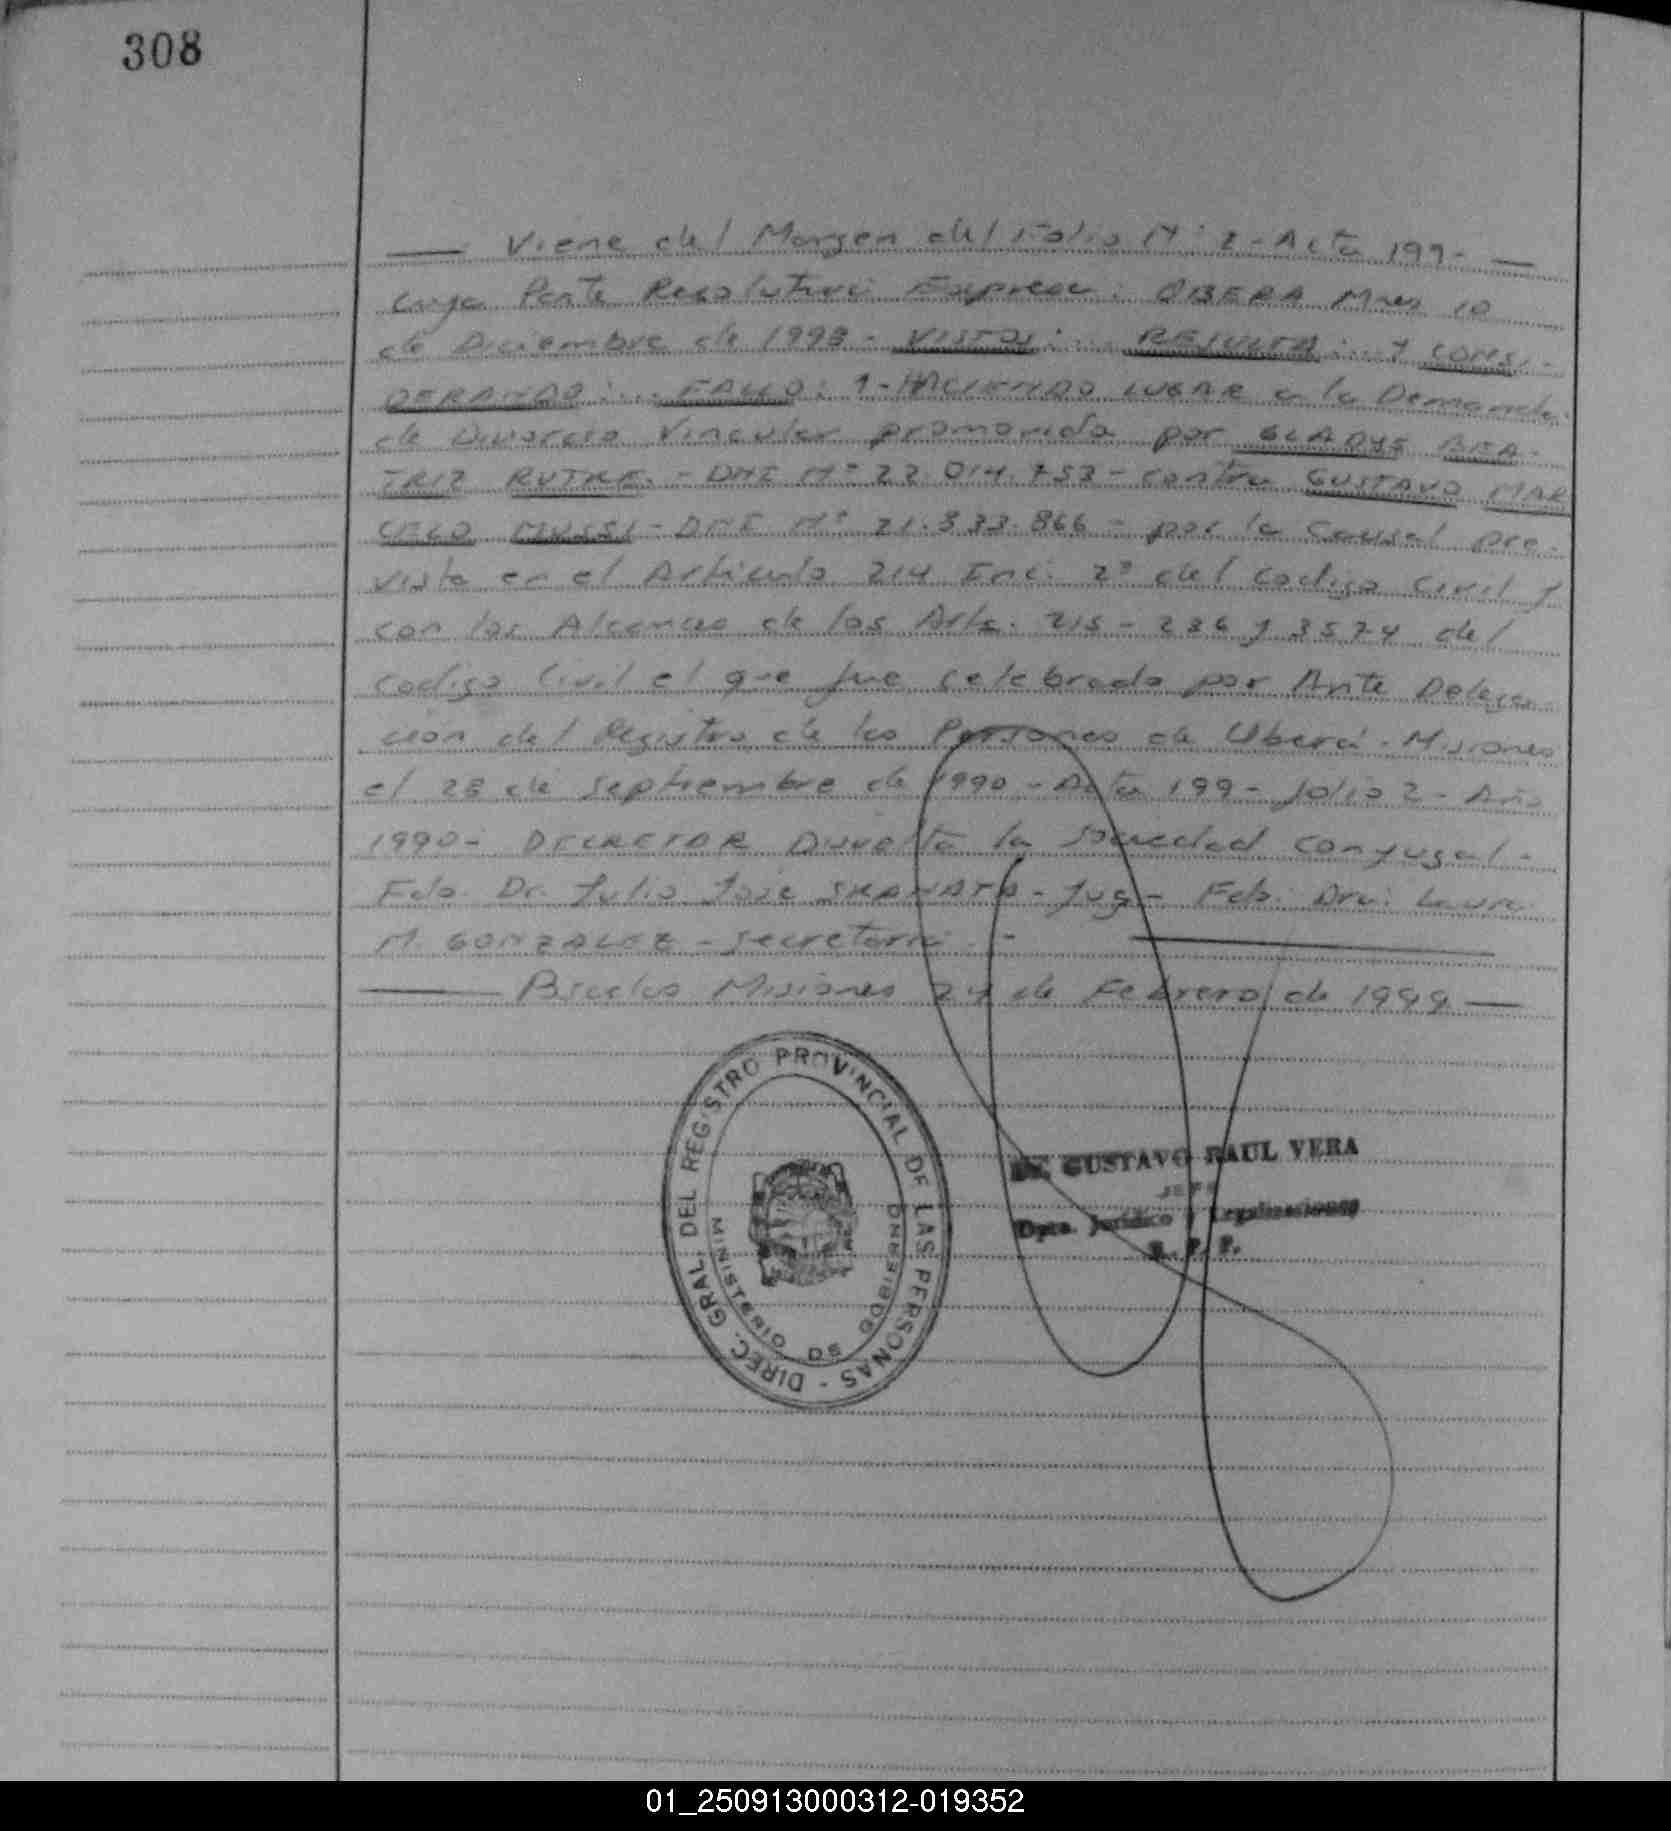 308
Viene del Margen del Folio Nº 2 - Acta 199 -
cuya Parte Resolutiva Expresa: OBERA Mnes 10
de Diciembre de 1998 - VISTOS: ... RESULTA: ... Y CONSI-
DERANDO: ... FALLO: 1- HACIENDO LUGAR a la Demanda
de Divorcio Vincular promovida por GLADYS BEA-
TRIZ - DNI Nº 22.014.753 - contra GUSTAVO MAR
CELO MUSSI - DNI Nº 21.333.866 - por la Causal pre-
vista en el Articulo 214 Inc. 2º del Codigo Civil y
con los Alcances de los Arts. 215 - 236 y 3574 del
Codigo Civil el que fue celebrado por Ante Delega-
cion del Registro de las Personas de Oberá - Misiones
el 28 de Septiembre de 1990 - Acta 199 - folio 2 - Año
1990 - DECRETAR Disuelta la Sociedad Conyugal -
Fdo. Dr. Julio José - Juez - Fdo. Dra. Laura
M. GONZALEZ - Secretaria. -
Misiones 24 de Febrero de 1999
DIREC. GRAL. DEL REGISTRO PROVINCIAL DE LAS PERSONAS -
MINISTERIO DE GOBIERNO
Dr. GUSTAVO RAUL VERA
JEFE
Dpto. Jurídico y Legalizaciones
R. P. P.
01_250913000312-019352